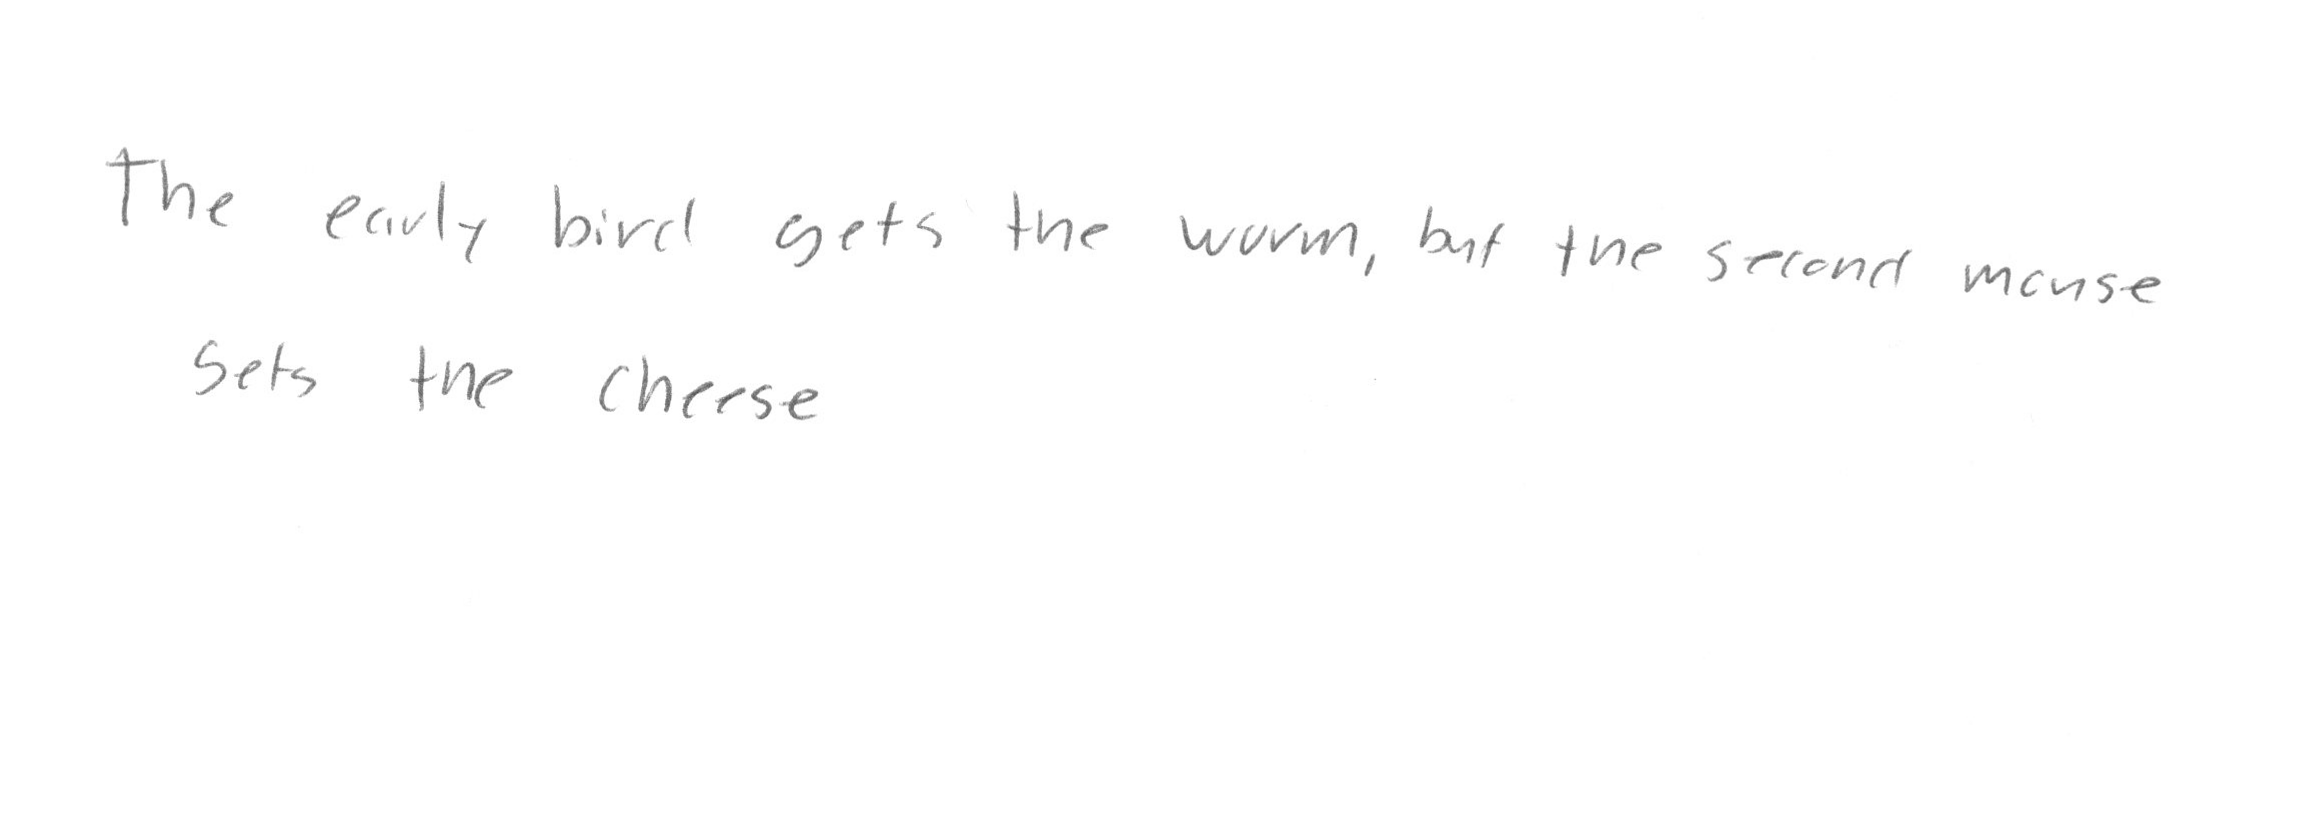 The early bird gets the worm, but the second mouse
gets the cheese